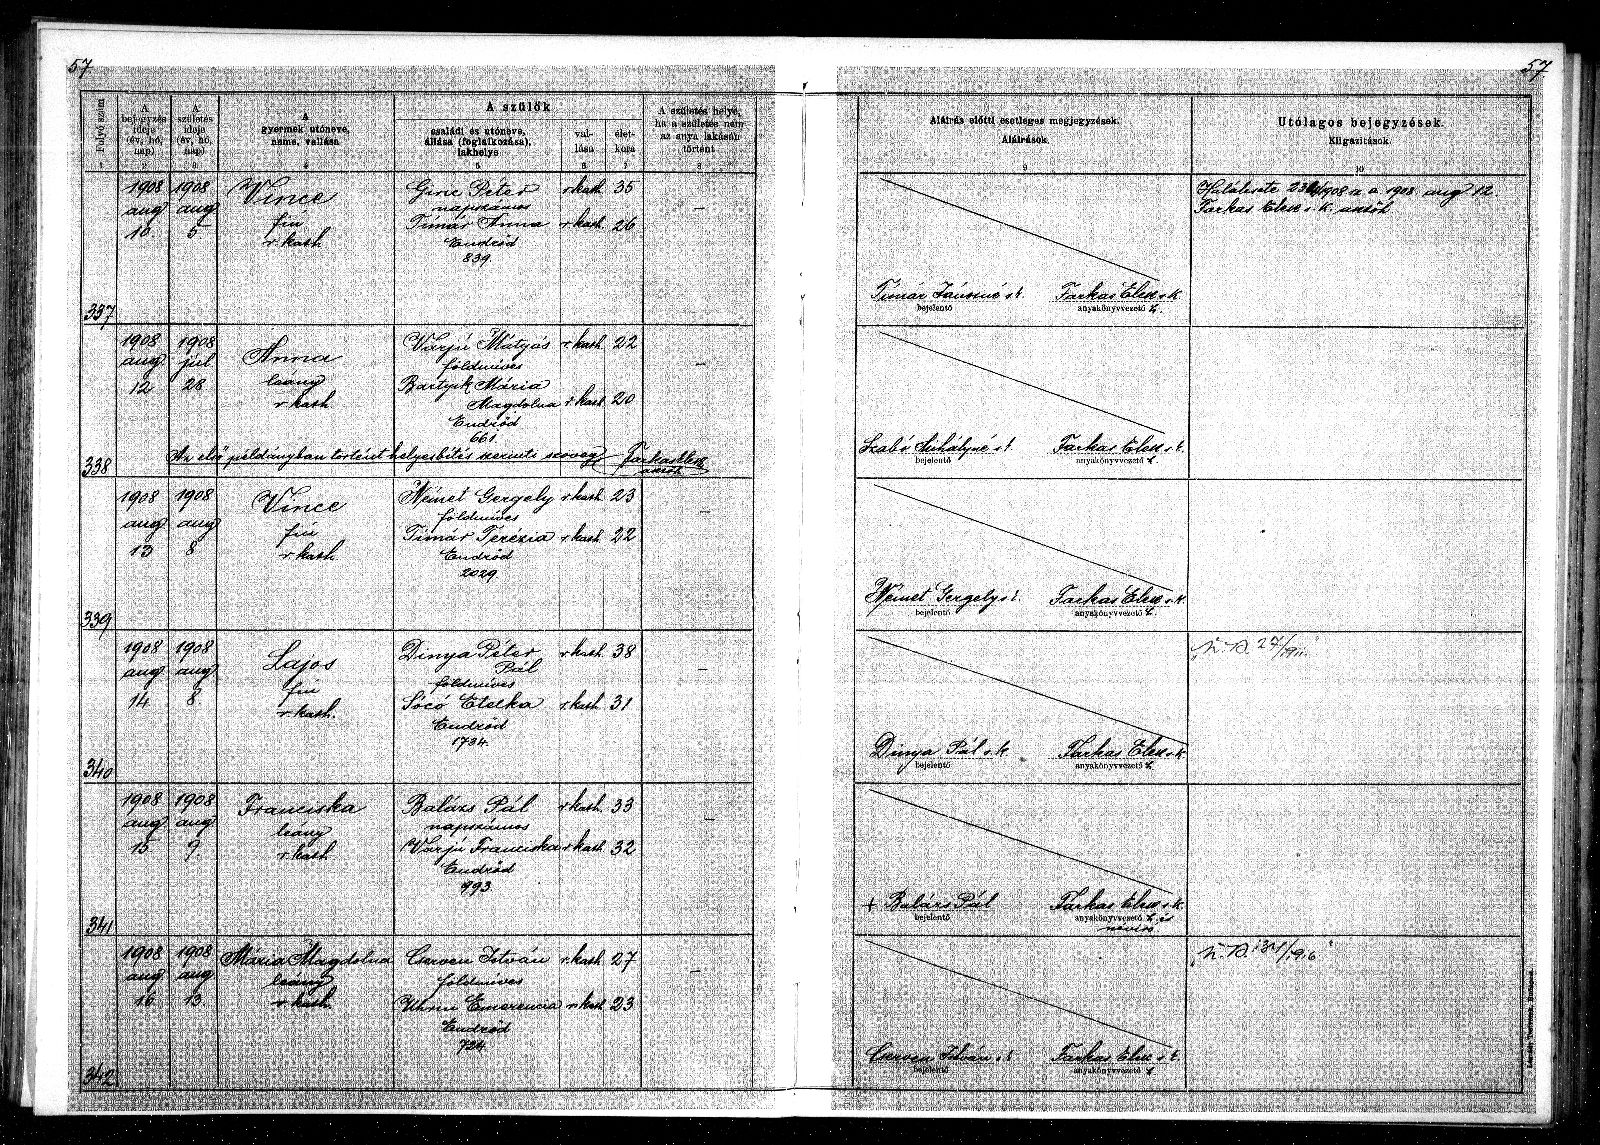 57
57
Folyó szám
A bejegyzés ideje (év, hó, nap)
A születés ideje (év, hó, nap)
A gyermek utóneve, neme, vallása
A szülők
családi és utóneve, állása (foglalkozása), lakhelye
vallása
életkora
A születés helye, ha a születés nem az anya lakásán történt
Aláírás előtti esetleges megjegyzések. Aláírások.
Utólagos bejegyzések. Kiigazítások.
337
1908 aug 10
1908 aug 5
Vince
fiú
r. kath.
Péter r. kath. 35
napszámos
Timár Anna r. kath. 26
Endrőd
839.
—
Timár Jánosné s. k. Farkas Elek s. k.
bejelentő anyakönyvvezető h.
1908 a. a. 1908 aug 12
Farkas Elek s. k. akvöh
338
1908 aug 12
1908 jul 28
Anna
leány
r. kath.
Varjú Mátyás r. kath. 22
földmíves
Bartyik Mária
Magdolna r. kath. 20
Endrőd
661.
—
Az első példányban történt helyesbítés szerinti szöveg Farkas Elek
akvöh
Szabó Mihályné s. k. Farkas Elek s. k.
bejelentő anyakönyvvezető h.
339
1908 aug 13
1908 aug 8
Vince
fiú
r. kath.
Német Gergely r. kath. 23
földmíves
Timár Terézia r. kath. 22
Endrőd
2029
—
Német Gergely s. k. Farkas Elek s. k.
bejelentő anyakönyvvezető h.
340
1908 aug 14
1908 aug 8.
Lajos
fiú
r. kath.
Dinya Péter r. kath. 38
Pál
földmíves
Sócó Etelka r. kath. 31
Endrőd
1734.
—
Dinya Pál s. k. Farkas Elek s. k.
bejelentő anyakönyvvezető h.
341
1908 aug 15
1908 aug 9.
Franciska
leány
r. kath.
Balázs Pál r. kath. 33
napszámos
Varjú Franciska r. kath. 32
Endrőd
993
—
+ Balázs Pál Farkas Elek s. k.
bejelentő anyakönyvvezető h. és
névíró
342
1908 aug 16
1908 aug 13
Mária Magdolna
leány
r. kath.
Cserven István r. kath. 27
földmíves
Uhrin Emerencia r. kath. 23
Endrőd
724.
—
Cserven István s. k. Farkas Elek s. k.
bejelentő anyakönyvvezető h.